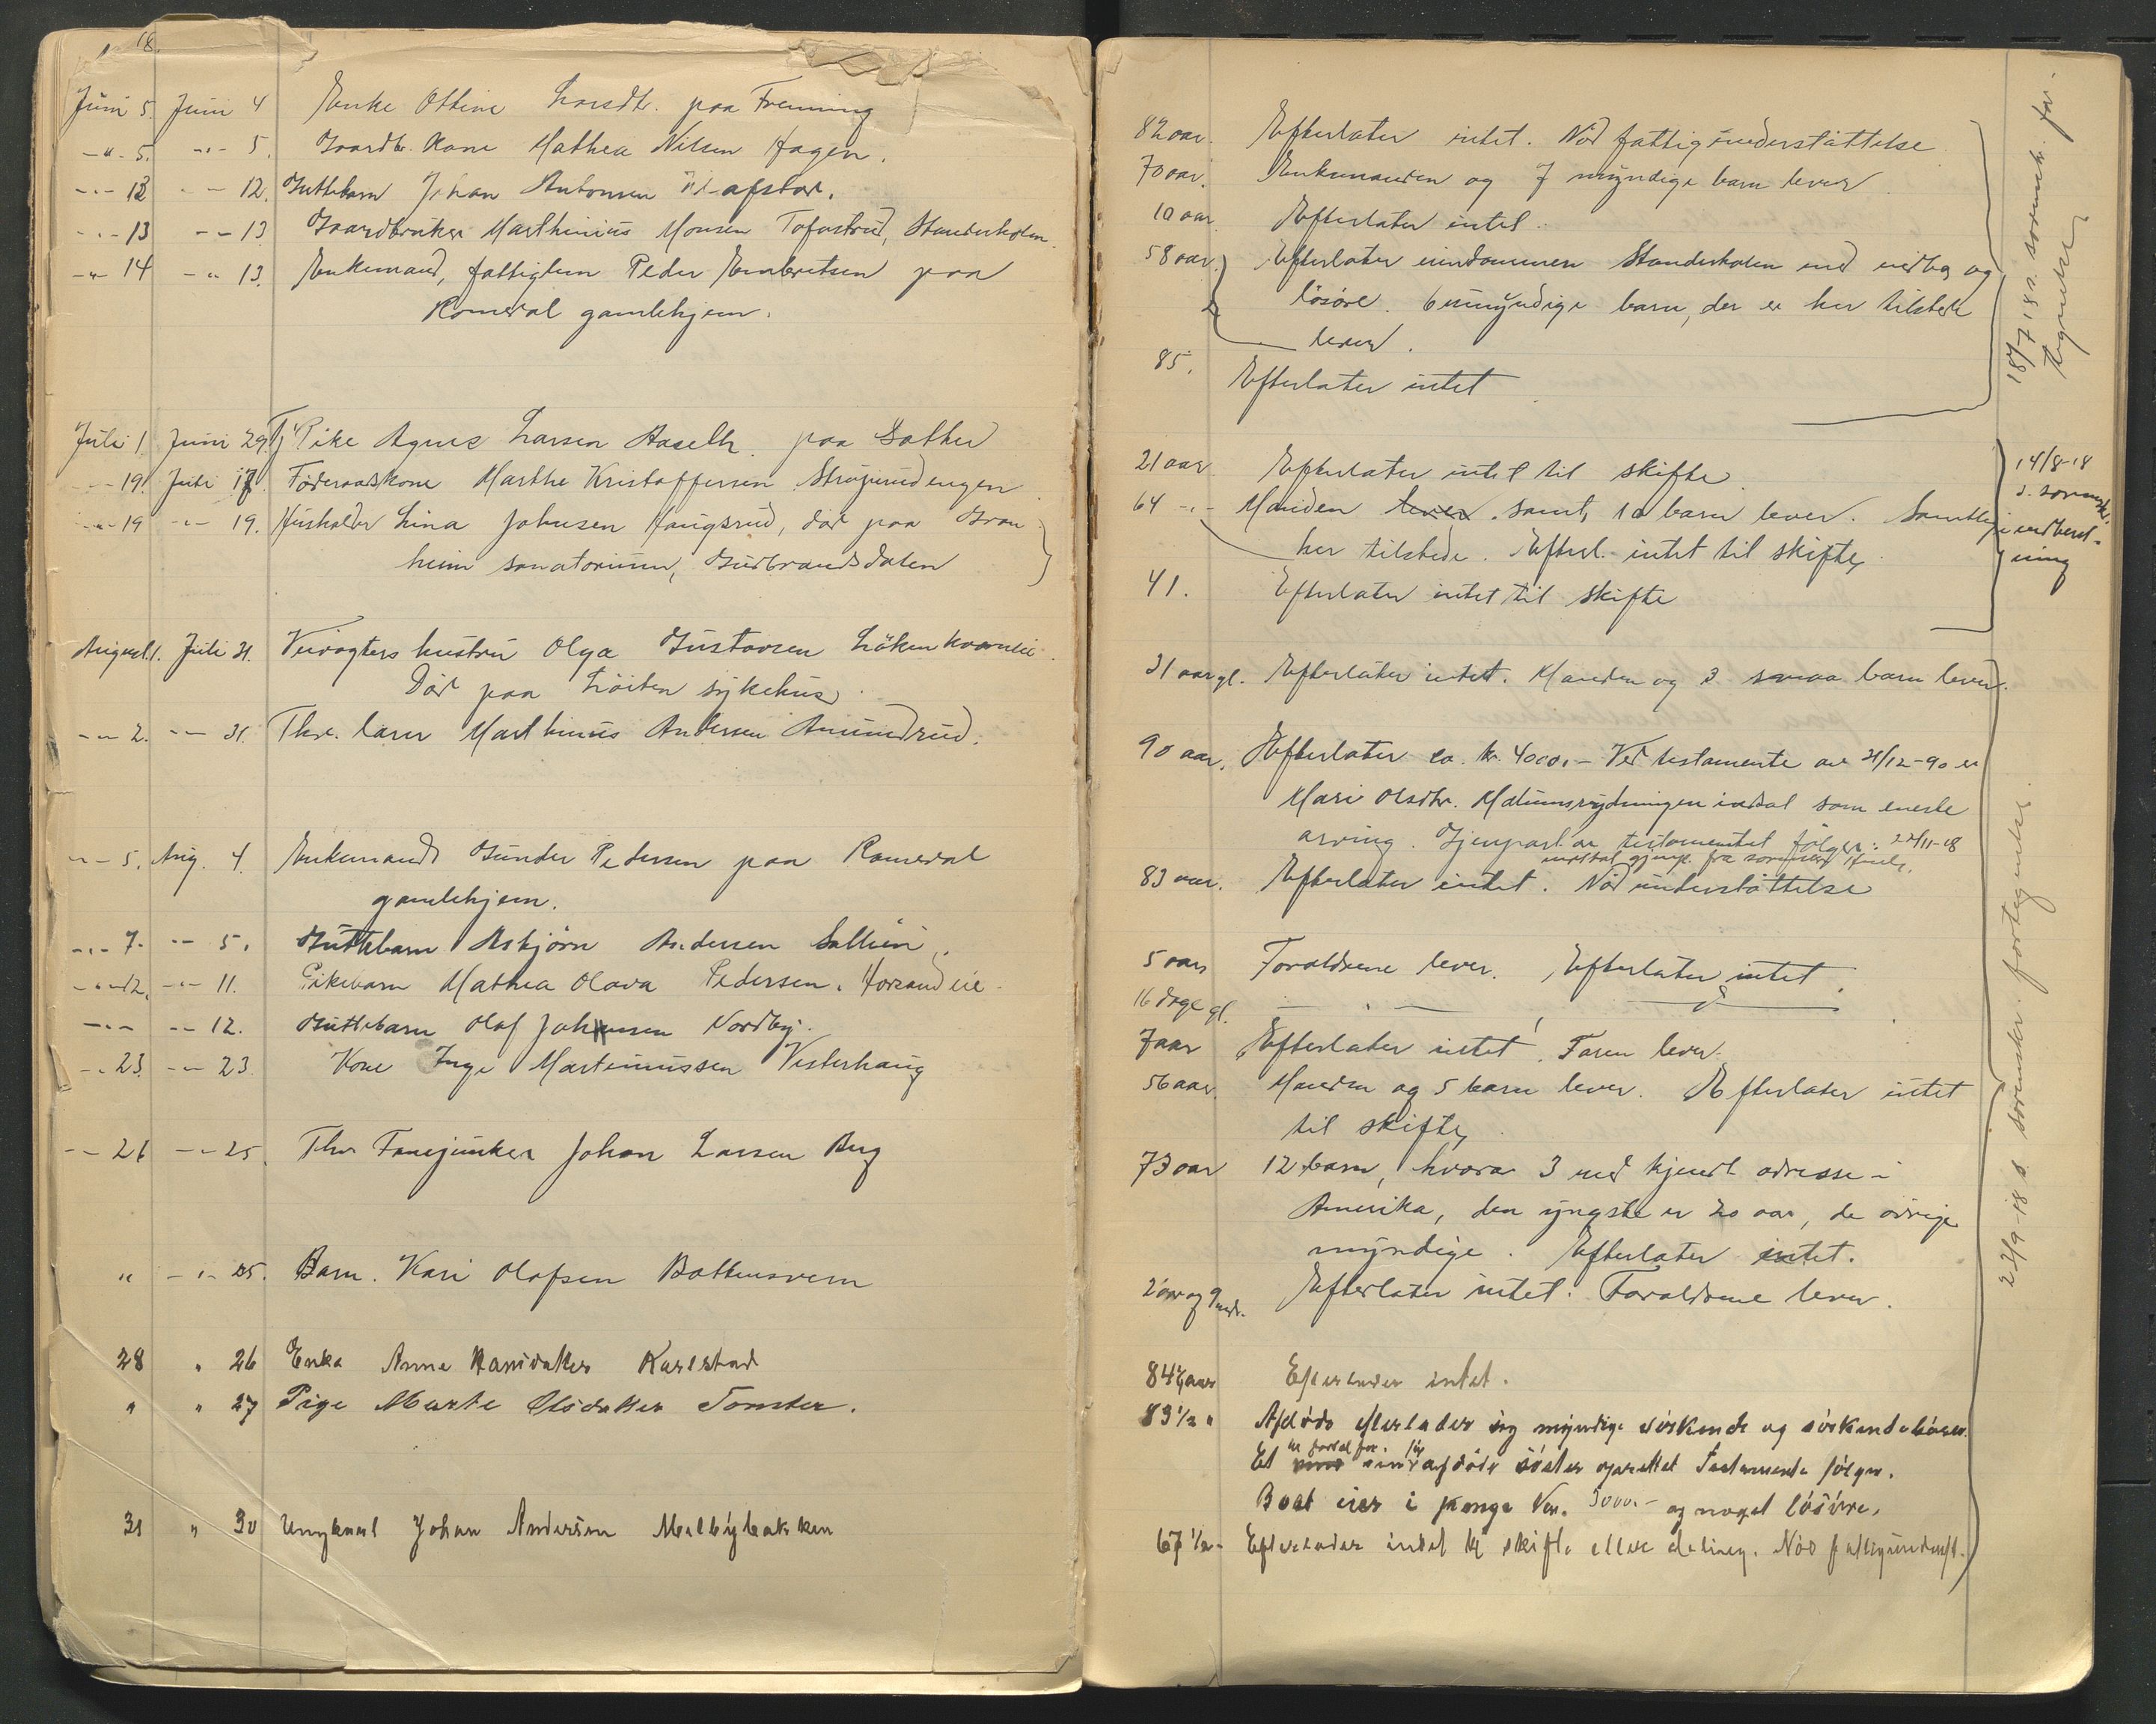 18.
Juni 5. Juni 4 Enke Ottine Larsdtr. paa Frenning
-"- 5. -"- 5. Gaardbr. kone Mathea Nilsen Hagen.
-"- 12 -"- 12. Guttebarn Johan Antonsen
-"- 13 -"- 13 Gaardbruker Marthinius Monsen Tofastrud, Standerholen.
-"- 14 -"- 13. Enkemand, fattiglem Peder Embretsen paa
Romedal gamlehjem.
Juli 1. Juni 29. Tj. Pike Agnes Larsen Aaseth. paa Sæther
-"- 19. Juli 17. Føderaadskone Marthe Kristoffersen Strøjerudengen
-"- 19 -"- 19. Husholder Lina Johnsen Haugsrud, død paa Gran
heim sanatorium, Gudbrandsdalen
August 1. Juli 31. Veivogters hustru Olga Gustavsen Løken kværneie.
Død paa Løiten sykehus.
-"- 2. -"- 31. Fhv. lærer Marthinus Andersen Amundrud.
-"- 5. Aug. 4. Enkemand Gunder Pedersen paa Romedal
gamlehjem.
-"- 7. -"- 5. Guttebarn Asbjørn Andersen
-"- 12. -"- 11. Pikebarn Mathea Olava Pedersen, Horsand eie.
-"- -"- 12. Guttebarn Olaf Johansen Nordby.
-"- 23. -"- 23. Kone Inge Martinussen Vesterhaug
-"- 26 -"- 25. Fhv Fanejunker Johan Larsen Aug
" -"- 25. Barn. Kari Olafsen Bottensvem
28 " 26 Enke Anne Hansdatter Karlstad
" " 27 Pige Marte Olsdatter Tomter.
31 " 30 Ungkarl Johan Andersen Melbybakken
82 aar. Efterlater intet. Nød fattigunderstøttelse
70 aar. Enkemanden og 7 myndige barn lever
10 aar Efterlater intet.
58 aar. Efterlater eiendommen Standerholen med indbo og
løsøre. 6 umyndige barn, der er her tilstede
lever.
85. Efterlater intet
18/7 18 s. sorensk. for
tegnelse
21 aar. Efterlater intet til skifte
64 -"- Manden lever. samt 10 barn lever. Samtlige
her tilstede. Efterl. intet til skifte
41. Efterlater intet til skifte
14/8-18
s. sorensk.
indberet-
ning
31 aar gl. Efterlater intet. Manden og 3 smaa barn lever.
90 aar. Efterlater ca. kr. 4000.- Ved testamente av 21/12-90 er
Mari Olsdtr. Malumsrydningen indsat som eneste
arving. Gjenpart av testamentet følger. 22/11-18
mottat gjenp. fra sorenskr.
83 aar. Efterlater intet. Nød understøttelse
5 aar Forældrene lever. Efterlater intet.
16 dage gl. — " —
7 aar Efterlater intet. Faren lever.
56 aar. Manden og 5 barn lever. Efterlater intet
til skifte
73 aar 12 barn, hvorav 3 med kjendt adresse i
Amerika, den yngste er 20 aar, de øvrige
myndige. Efterlater intet.
2 aar og 9 mdr. Efterlater intet. Forældrene lever.
84 1/2 aar Efterlader intet.
83 1/2 " Afdøde efterlader sig myndige søskende og søskendebørn.
Et afdøde søster oprettet Testamente følger.
Boet eier i penge Kr. 3000.- og noget løsøre.
67 1/2 - Efterlader intet til skifte eller deling. Nød fattigunderst.
23/9-18 s. sorenskr. fortegnelse.